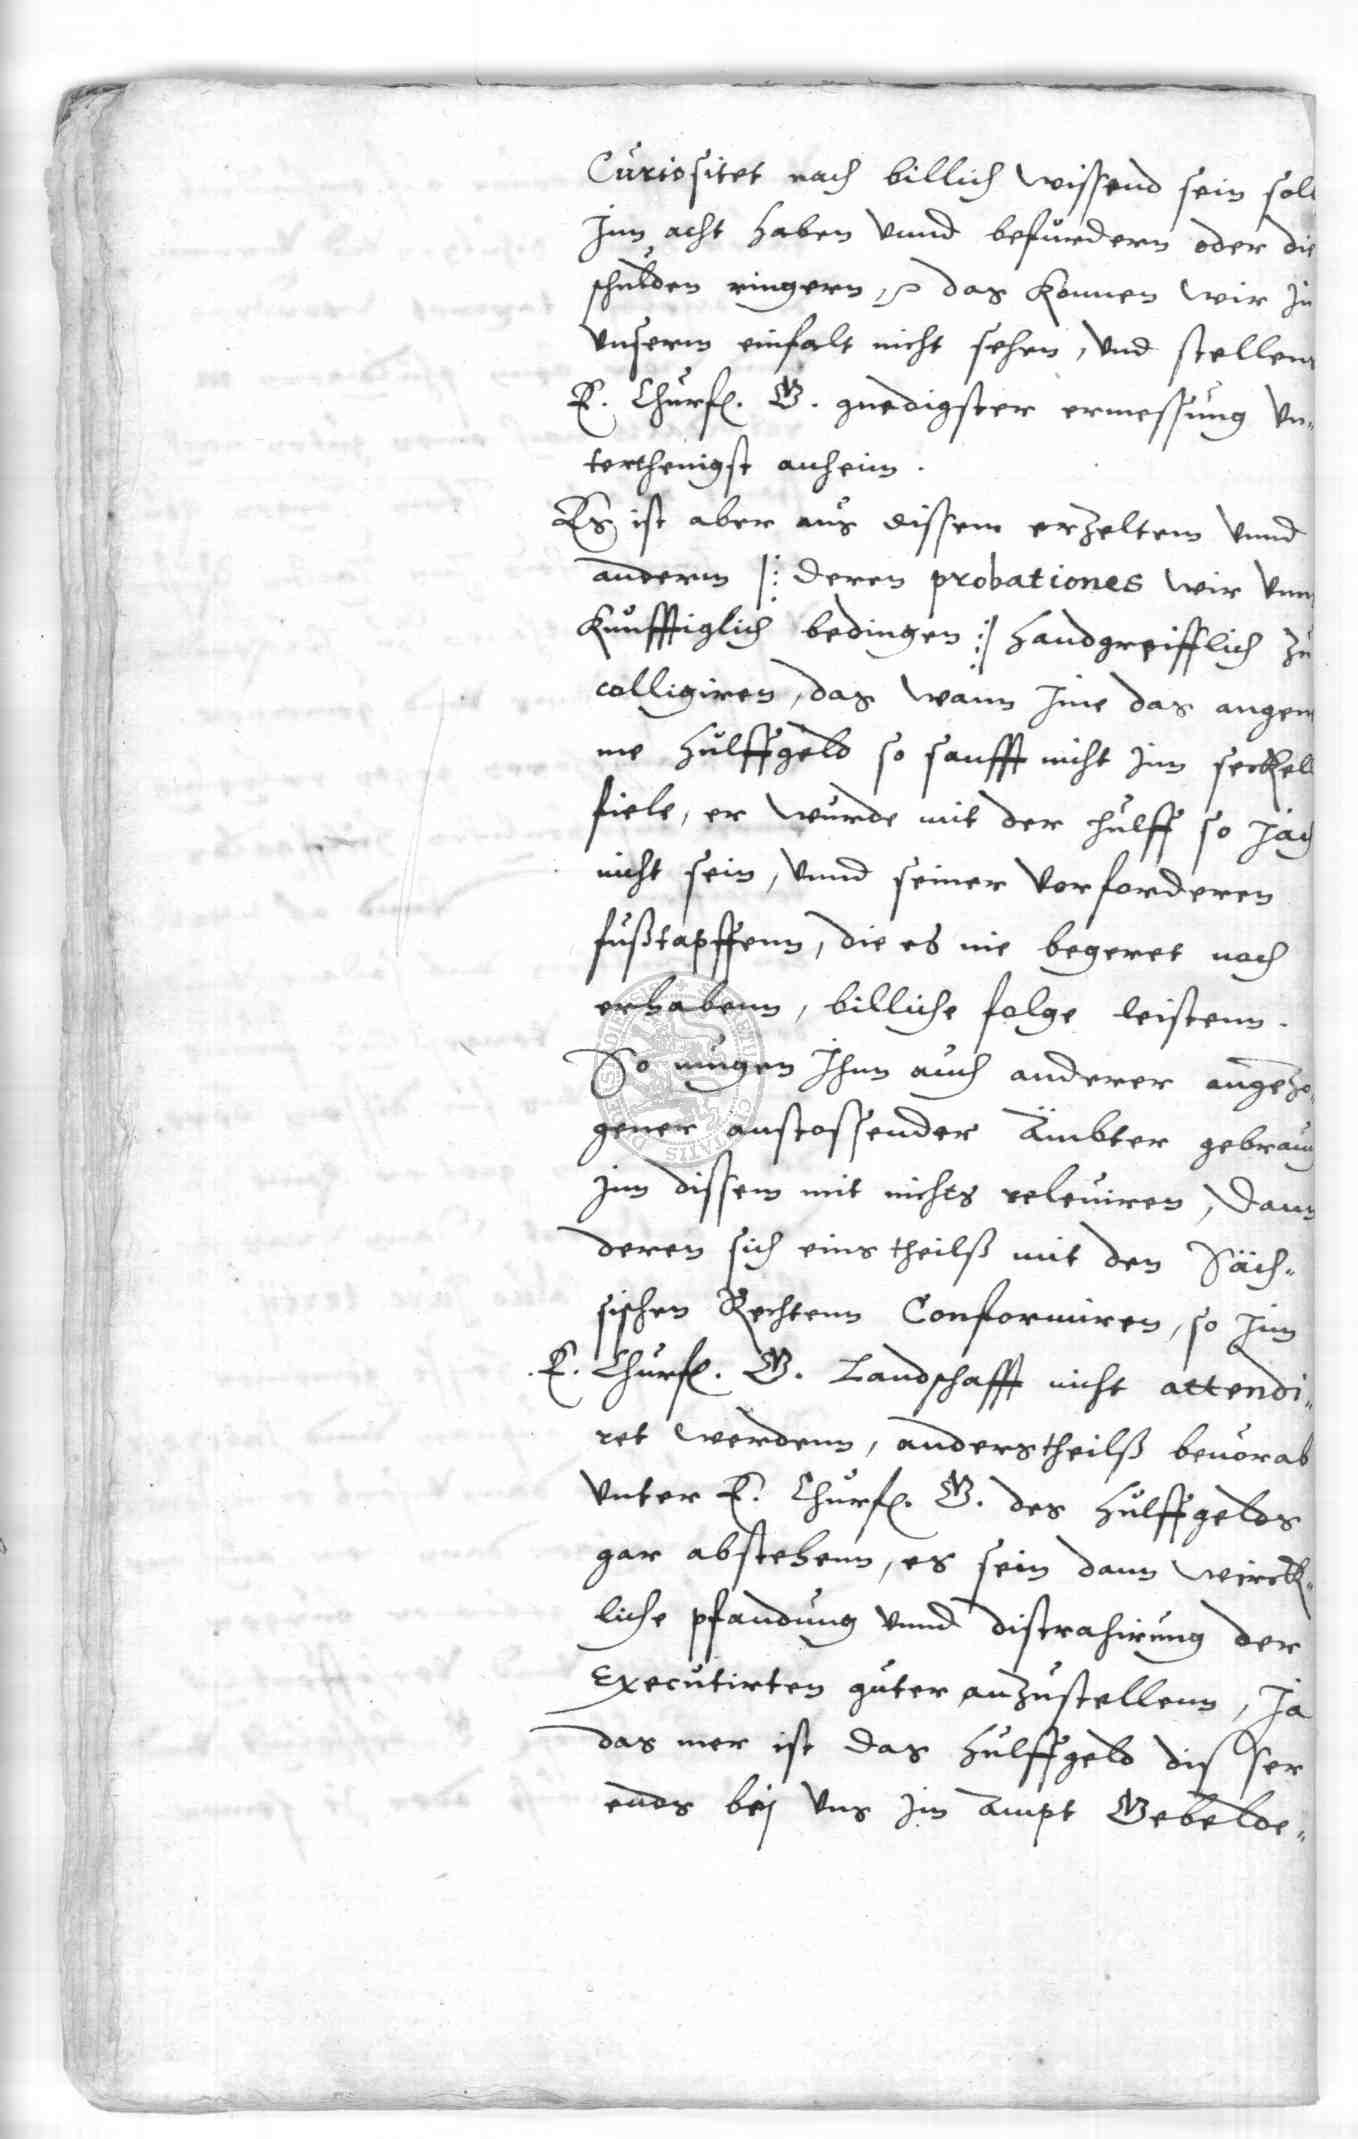 Curiositet nach billich wissend sein soll
Inn acht haben vnnd befurdern oder die
schulden ringern, das konnen wir In
vnserm einfalt nicht sehen, vnd stellens
E. Churf. G. gnedigster ermessung vn„
terthenigst anheim.
Es ist aber aus dissem erzeltem vnnd
anderm |: deren probationes wir vnns
kunfftiglich bedingen :| handgreifflich zu
colligiren, das wann Ime das angene
me hulffgeld so sanfft nicht Inn seckell
fiele, er wurde mit der hulff so Jach
nicht sein, vnnd seiner vorforderen
fußtapffenn, die es nie begeret noch
erhabenn, billiche folge leistenn.
So mugen Ihnn auch anderer angezo„
gener anstossender Ämbter gebrauch
Inn dissem mit nichts releuiren, dann
deren sich eins theilß mit den Säch„
sischen Rechtenn Conformiren, so Inn
E. Churf. G. Landschafft nicht attendi„
ret werdenn, anderstheilß beuorab
vnter E. Churf. G. des hulffgelds
gar abstehenn, es sein dann wirck„
liche pfandung vnnd distrahirung der
Executirten guter anzustellenn, Ja
das mer ist das hulffgeld dis ser
ends bej vns Im Ampt Gebelde„